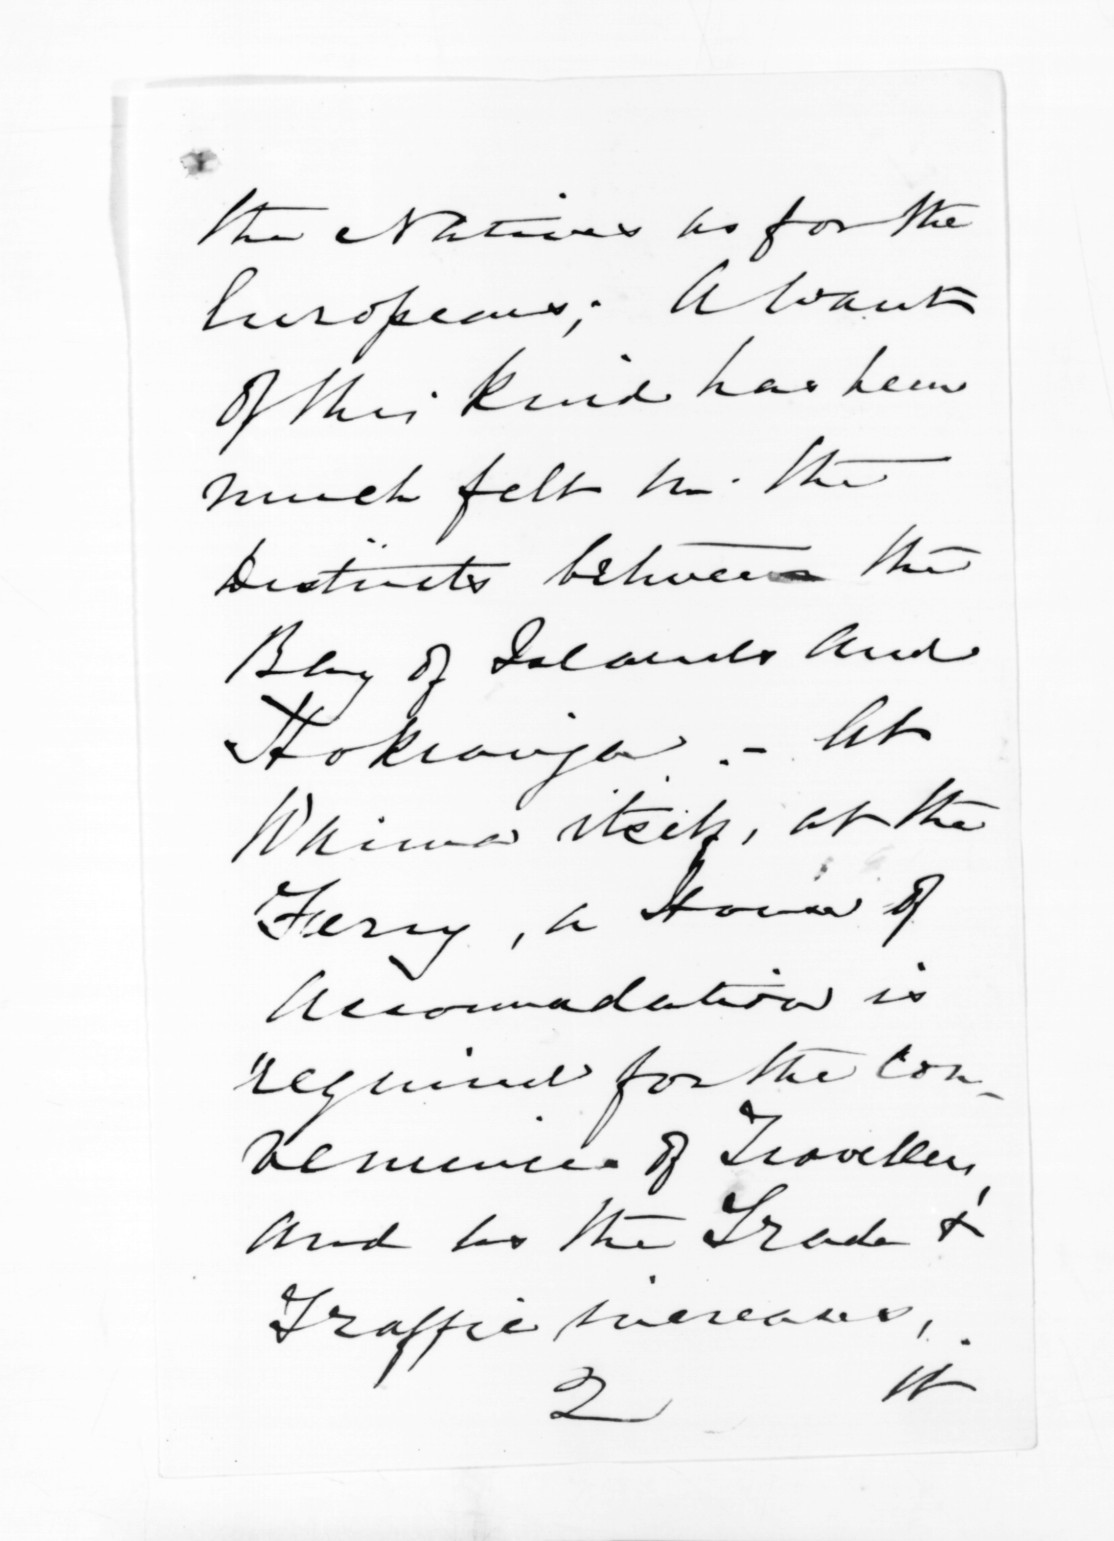 the Natives as for the
Europeans; A want
of this kind has been
much felt in the
Districts between the
Bay of Islands and
Hokianga. - At
Waima itself, at the
Ferry, a House of
Accomodation is
required for the con-
venience of Travellers,
and as the Trade &
Traffic increases,
2 it